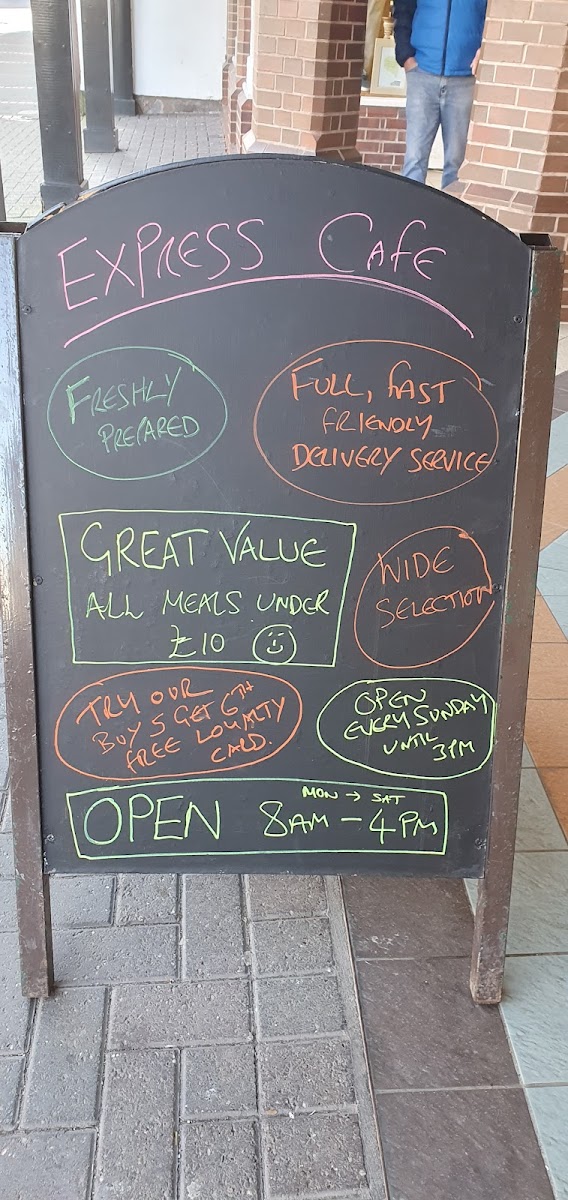 EXPRESS CAFE
FRESHLY
PREPARED
FULL, FAST
FRIENDLY
DELIVERY SERVICE
GREAT VALUE
ALL MEALS UNDER
£10
WIDE
SELECTION
TRY OUR
BUY 5 GET 6TH
FREE LOYALTY
CARD.
OPEN
EVERY SUNDAY
UNTIL
3PM
MON → SAT
OPEN 8AM - 4PM